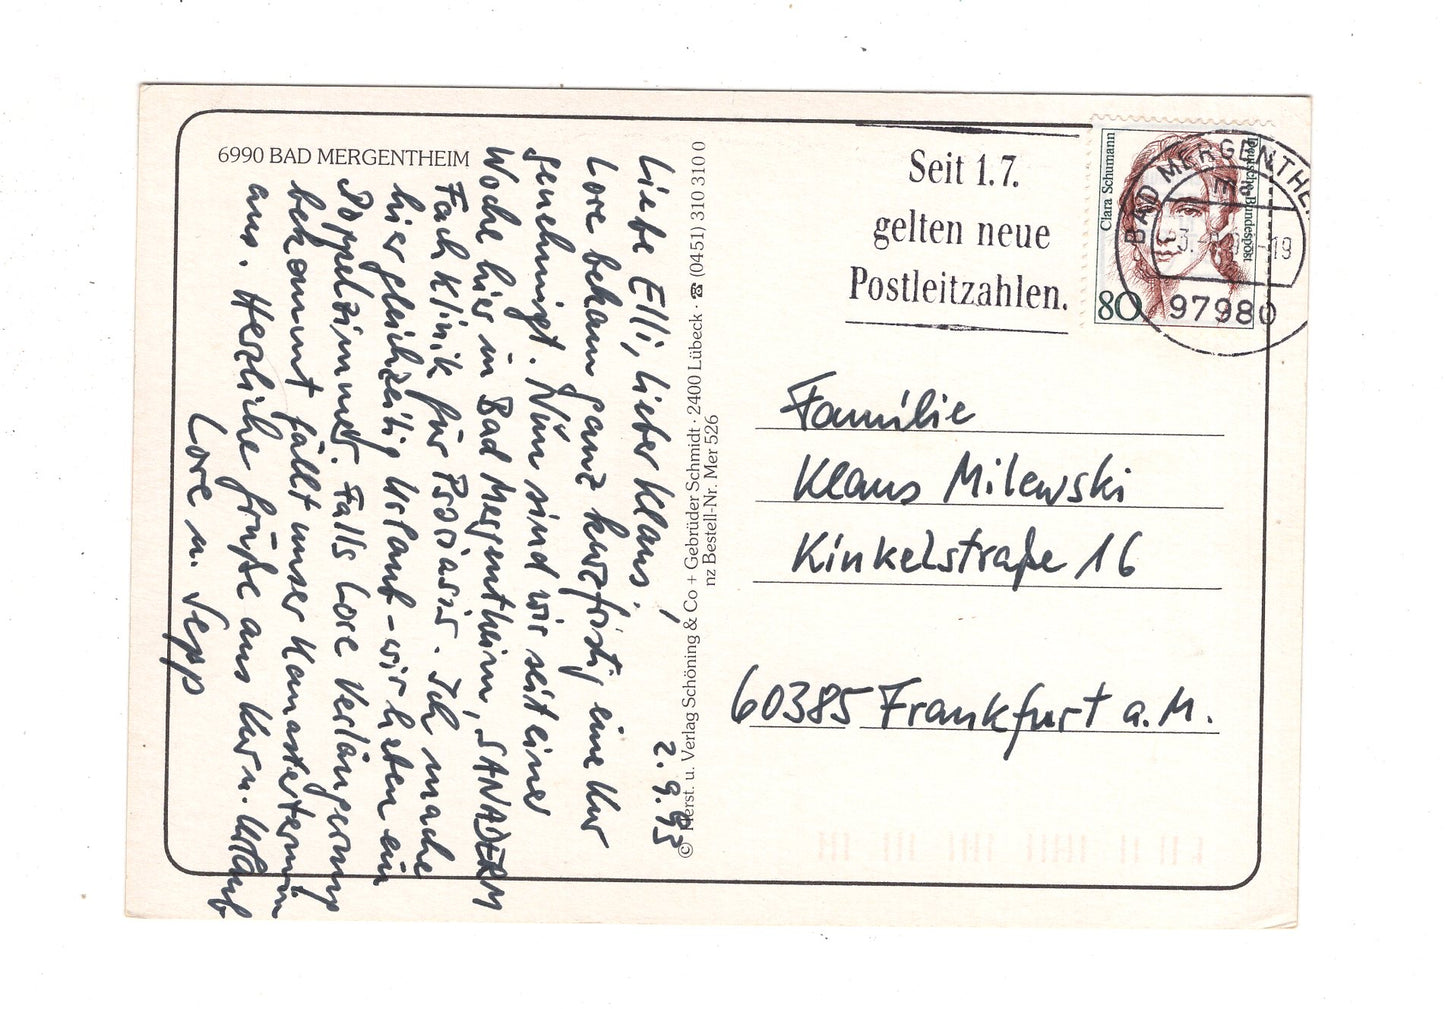 6990 BAD MERGENTHEIM
2.9.93
Liebe Elli, lieber Klaus,
Lore bekam ganz kurzfristig eine Kur
genehmigt. Nun sind wir seit einer
Woche hier in Bad Mergentheim, SANADERM
Fachklinik für Psoriasis. Ich mache
hier gleichzeitig Urlaub - wir haben ein
Doppelzimmer. Falls Lore Verlängerung
bekommt fällt unser Kanastertermin
aus. Herzliche Grüße aus Kur u. Urlaub
Lore u. Sepp
© Herst. u. Verlag Schöning & Co + Gebrüder Schmidt · 2400 Lübeck · ☎ (0451) 310 310 0
nz Bestell-Nr. Mer 526
Seit 1.7.
gelten neue
Postleitzahlen.
Clara Schumann
Deutsche Bundespost
80
BAD MERGENTHEI
ma
-19
97980
Familie
Klaus Milewski
Kinkelstraße 16
60385 Frankfurt a.M.